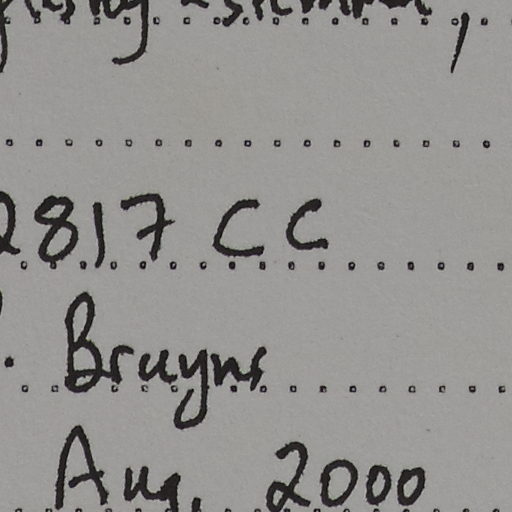 2817 CC
. Bruyns
Aug. 2000